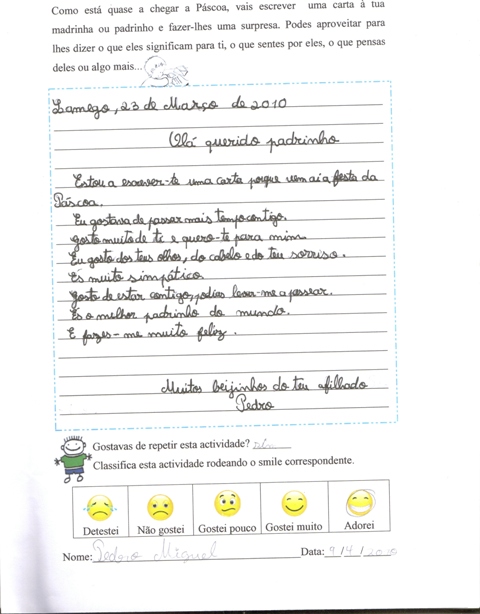 Como está quase a chegar a Páscoa, vais escrever uma carta à tua
madrinha ou padrinho e fazer-lhes uma surpresa. Podes aproveitar para
lhes dizer o que eles significam para ti, o que sentes por eles, o que pensas
deles ou algo mais...
Lamego, 23 de Março de 2010
Olá querido padrinho
Estou a escrever-te uma carta porque vem aí a festa da
Páscoa.
Eu gostava de passar mais tempo contigo.
Gosto muito de ti e quero-te para mim.
Eu gosto dos teus olhos, do cabelo e do teu sorriso.
És muito simpático.
Gosto de estar contigo, podias levar-me a passear.
És o melhor padrinho do mundo.
E fazes-me muito feliz.
Muitos beijinhos do teu afilhado
Pedro
Gostavas de repetir esta actividade?
Classifica esta actividade rodeando o smile correspondente.
Detestei Não gostei Gostei pouco Gostei muito Adorei
Nome: Pedro Miguel Data: 9/4/2010